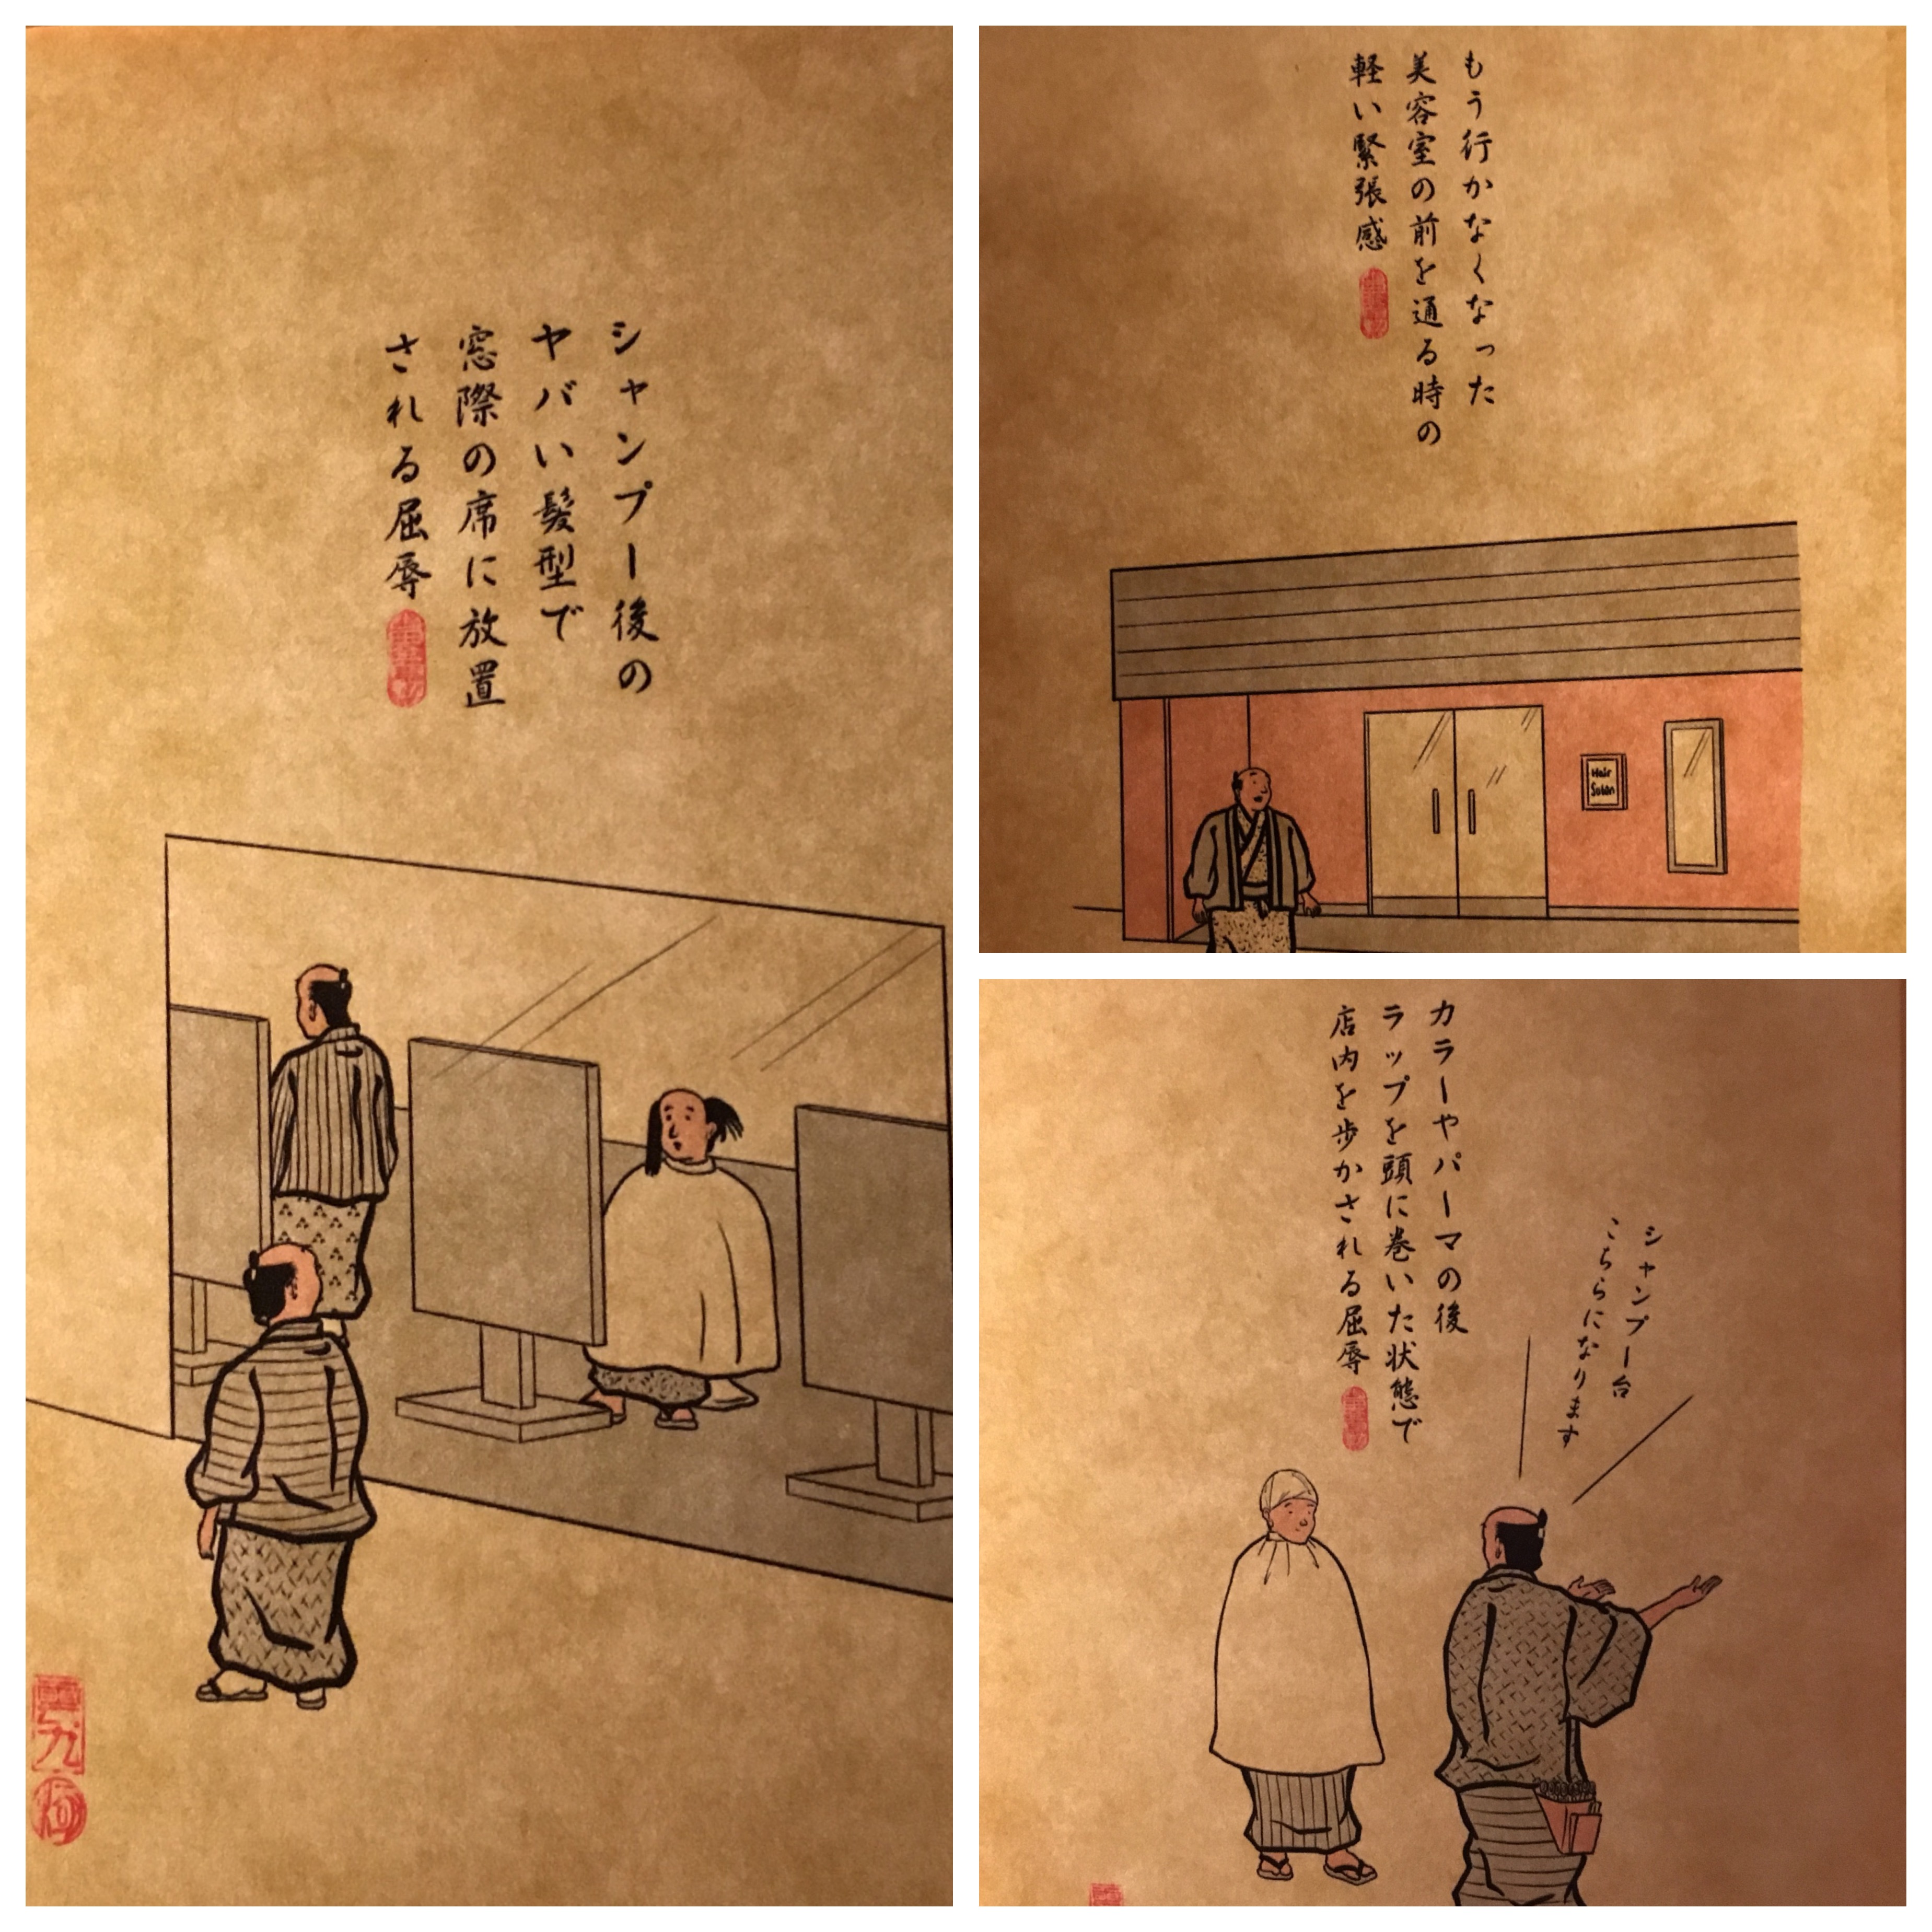 シャンプー後の
ヤバい髪型で
窓際の席に放置
される屈辱
もう行かなくなった
美容室の前を通る時の
軽い緊張感
Hair
Salon
カラーやパーマの後
ラップを頭に巻いた状態で
店内を歩かされる屈辱
シャンプー台
こちらになります